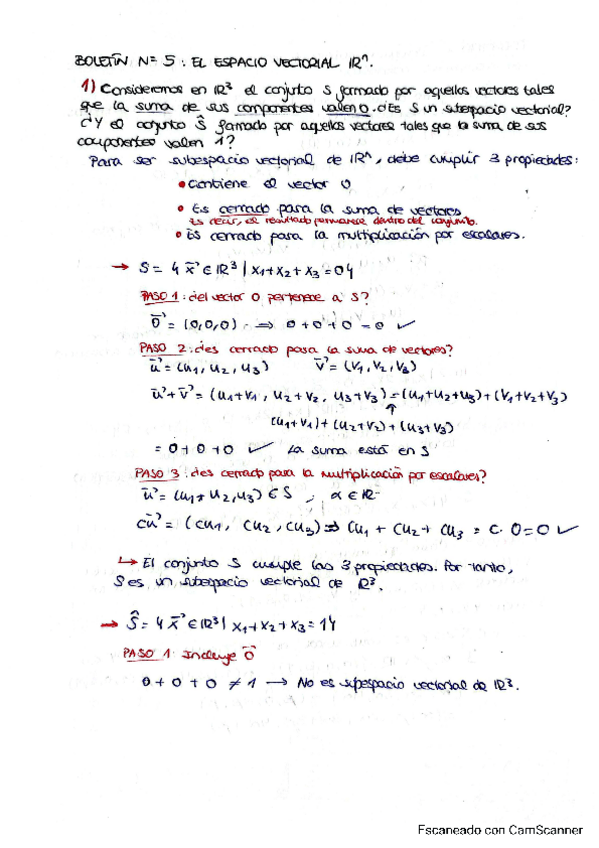 BOLETÍN Nº 5: EL ESPACIO VECTORIAL ℝⁿ.
1) Consideremos en ℝ³ el conjunto S formado por aquellos vectores tales
que la suma de sus componentes valen 0. ¿Es S un subespacio vectorial?
¿Y el conjunto Ŝ formado por aquellos vectores tales que la suma de sus
componentes valen 1?
Para ser subespacio vectorial de ℝⁿ, debe cumplir 3 propiedades:
• Contiene el vector 0
• Es cerrado para la suma de vectores
Es decir, el resultado permanece dentro del conjunto.
• Es cerrado para la multiplicación por escalares.
→ S = { x⃗ ∈ ℝ³ | x₁+x₂+x₃=0 }
PASO 1: ¿el vector 0 pertenece a S?
0⃗ = (0,0,0) ⇒ 0+0+0=0 ✓
PASO 2: ¿es cerrado para la suma de vectores?
u⃗ = (u₁, u₂, u₃) v⃗ = (v₁, v₂, v₃)
u⃗+v⃗ = (u₁+v₁, u₂+v₂, u₃+v₃) = (u₁+u₂+u₃)+(v₁+v₂+v₃)
↑
(u₁+v₁)+(u₂+v₂)+(u₃+v₃)
= 0+0+0 ✓ La suma está en S
PASO 3: ¿es cerrado para la multiplicación por escalares?
u⃗ = (u₁+u₂,u₃) ∈ S , α ∈ ℝ
cu⃗ = (cu₁, cu₂, cu₃) ⇒ cu₁ + cu₂ + cu₃ = c·0=0 ✓
↳ El conjunto S cumple las 3 propiedades. Por tanto,
S es un subespacio vectorial de ℝ³.
→ Ŝ = { x⃗ ∈ ℝ³ | x₁+x₂+x₃=1 }
PASO 1: Incluye 0⃗
0+0+0 ≠ 1 → No es subespacio vectorial de ℝ³.
Escaneado con CamScanner